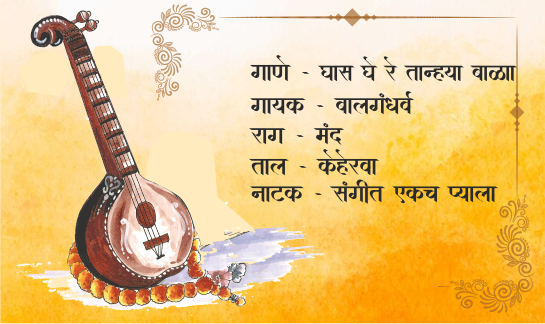 गाणे - घास घे रे तान्हया वाळा
गायक - वालगंधर्व
राग - मंद
ताल - केहेरवा
नाटक - संगीत एकच प्याला